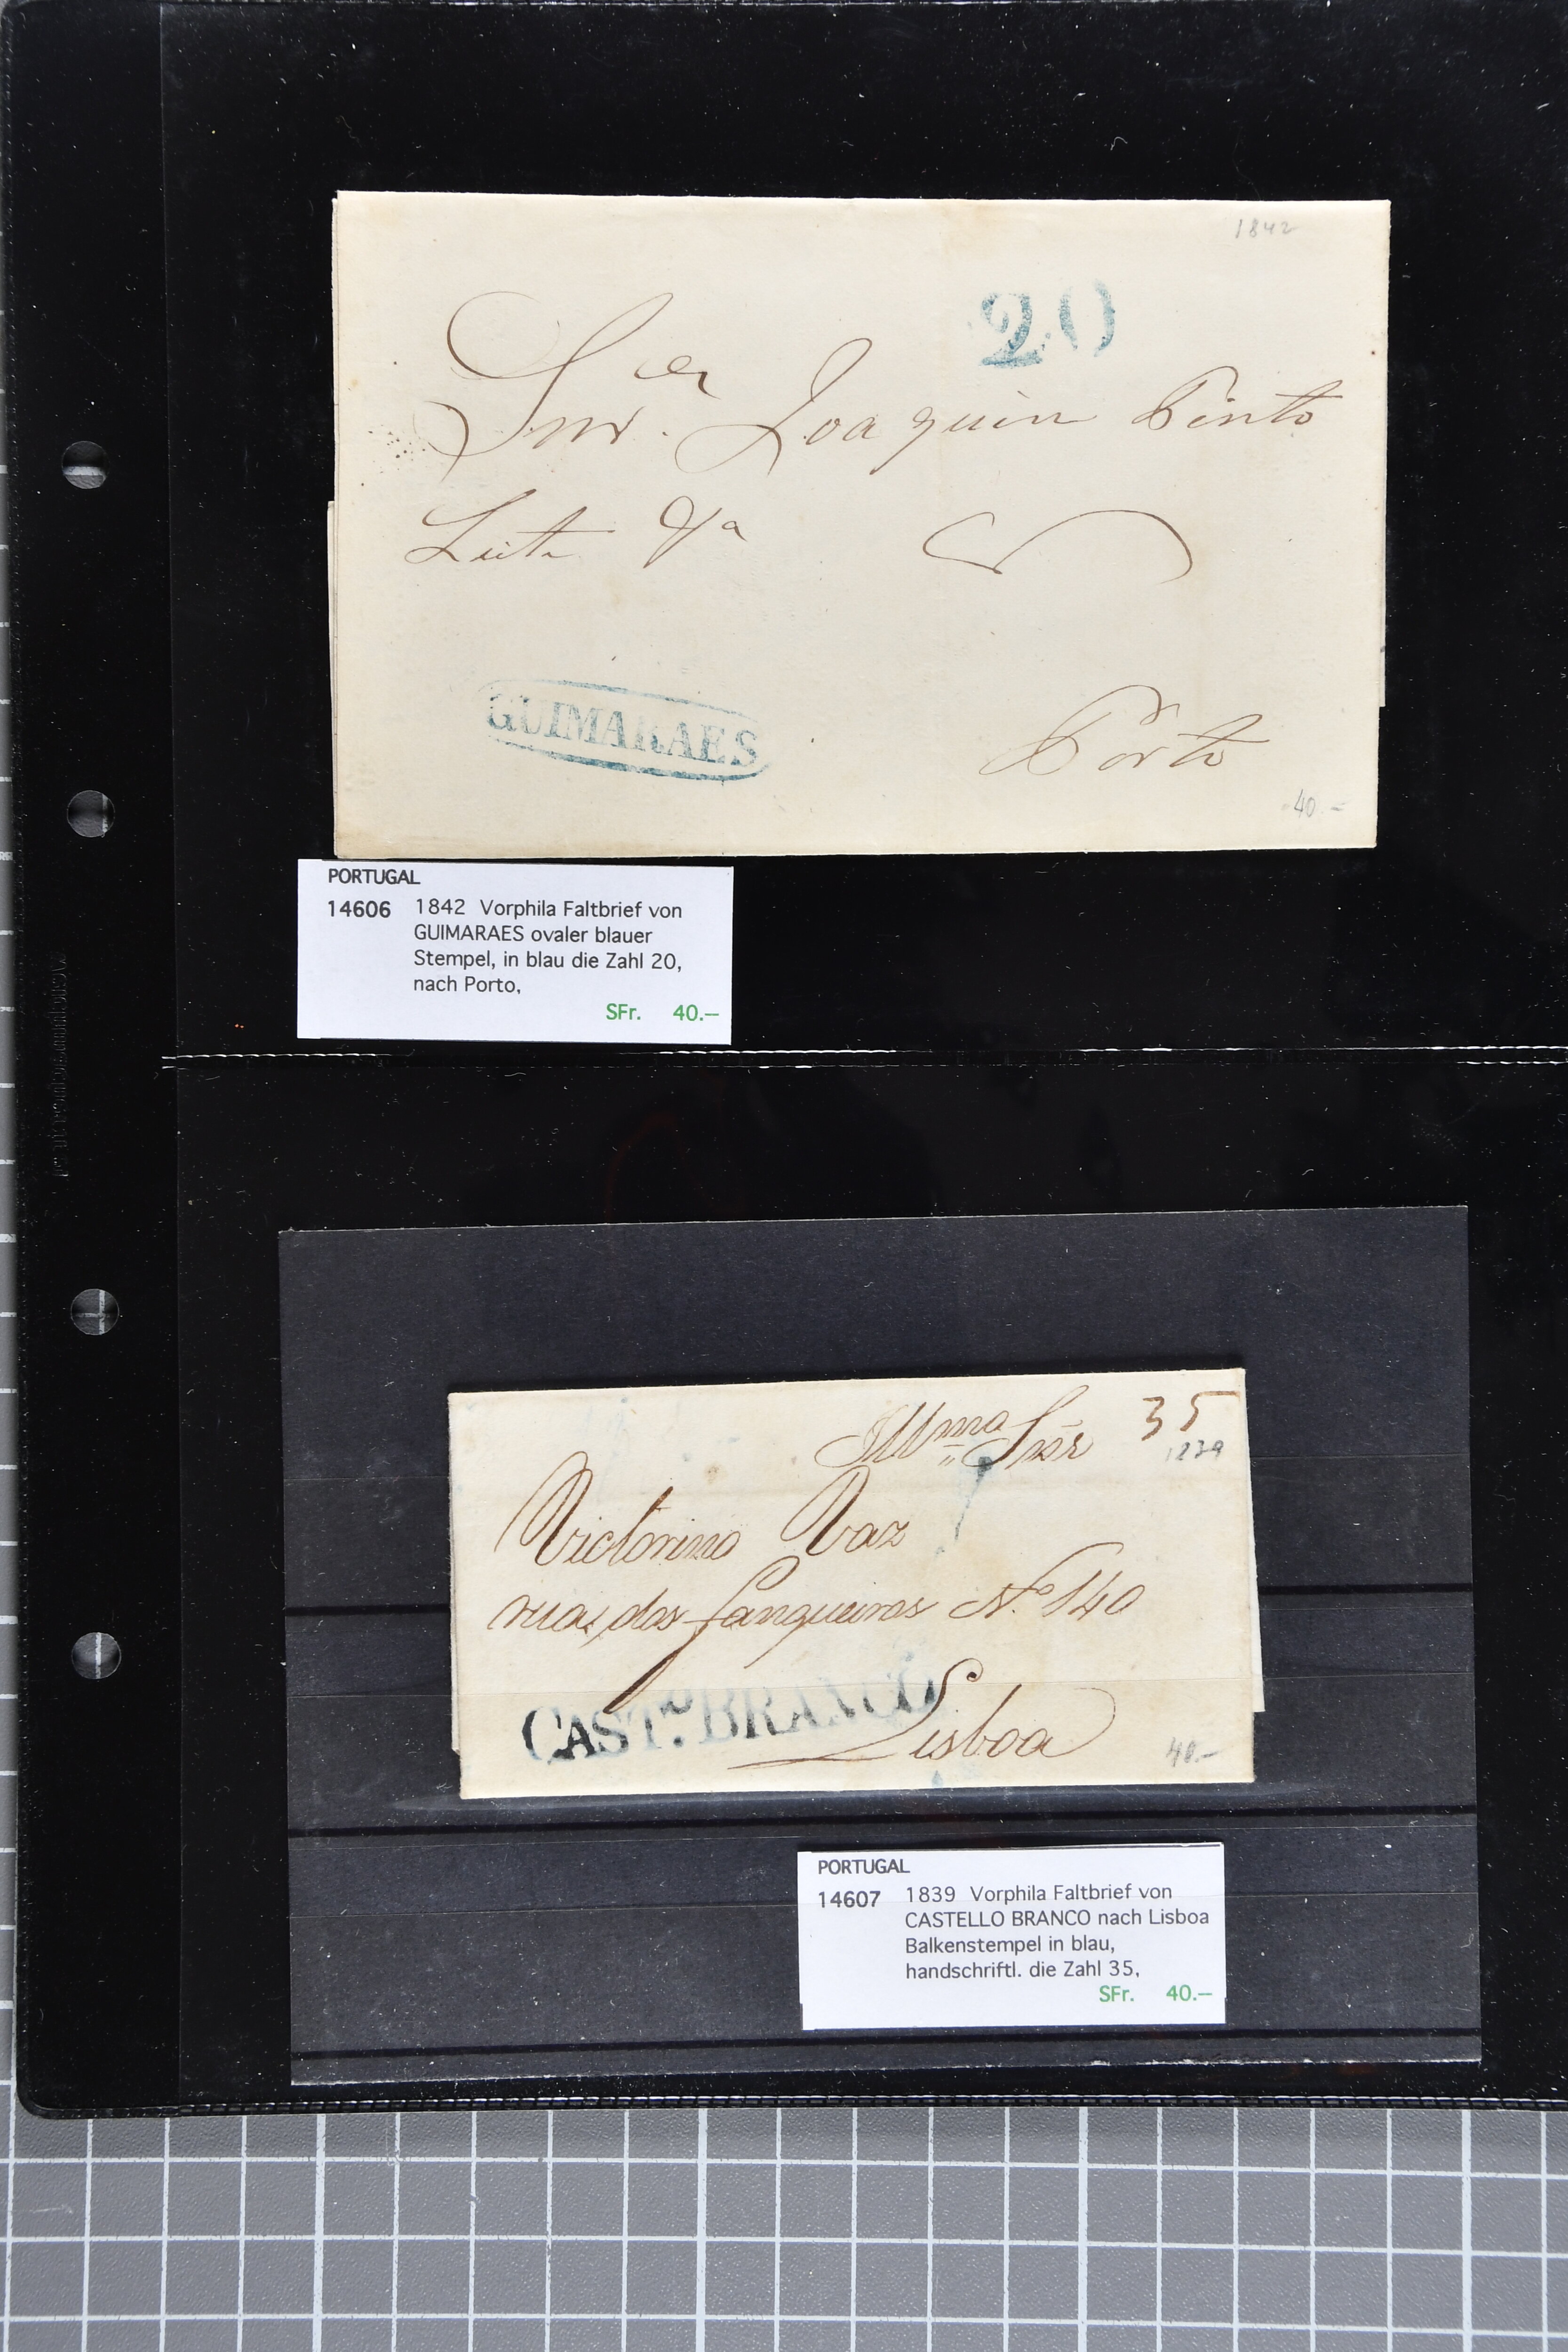 1842
20
Snr. er Joaquin Pinto
Leite & Ca
GUIMARAES
Porto
40.-
PORTUGAL
14606 1842 Vorphila Faltbrief von
GUIMARAES ovaler blauer
Stempel, in blau die Zahl 20,
nach Porto,
SFr. 40.–
Illmo Snr 35
Victorino Vaz
rua dos fanqueiros No 140
CASTO. BRANCO
Lisboa
40.-
PORTUGAL
14607 1839 Vorphila Faltbrief von
CASTELLO BRANCO nach Lisboa
Balkenstempel in blau,
handschriftl. die Zahl 35,
SFr. 40.–